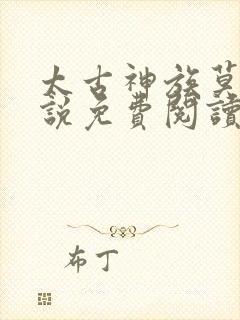 太古神族莫
說免費閱讀
布丁